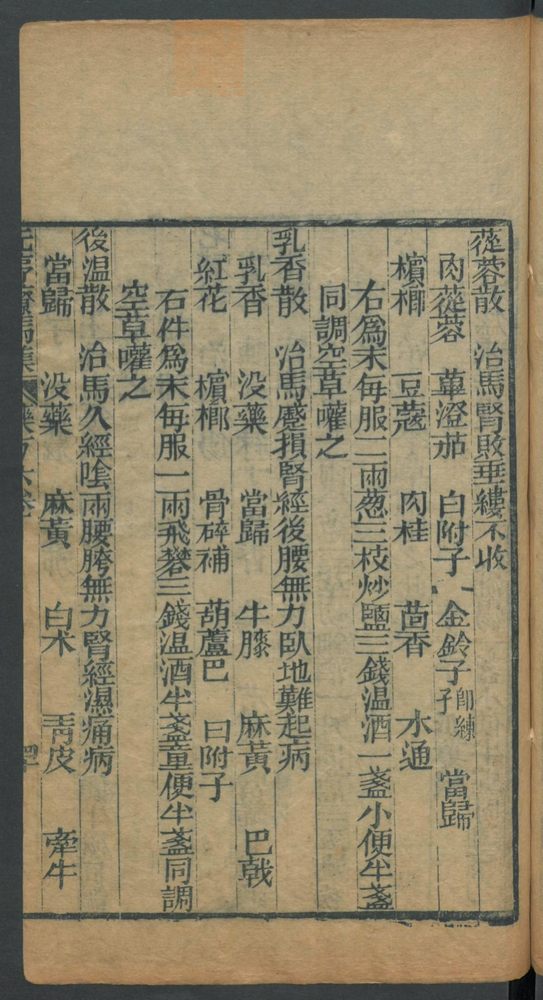 蓯蓉散 治馬腎敗垂縷不收
肉蓯蓉 蓽澄茄 白附子 金鈴子即練子 當歸
檳榔 豆蔻 肉桂 茴香 木通
右爲末每服二兩葱三枝炒鹽三錢温酒一盞小便半盞
同調空草嚾之
乳香散 治馬蹙損腎經後腰無力臥地難起病
乳香 没藥 當歸 牛膝 麻黃 巴戟
紅花 檳榔 骨碎補 葫蘆巴 曰附子
右件爲末每服一兩飛礬三錢温酒半盞童便半盞同調
空草嚾之
後温散 治馬久經陰雨腰胯無力腎經濕痛病
當歸 没藥 麻黃 白术 靑皮 牽牛
元亨療馬集 藥方六卷